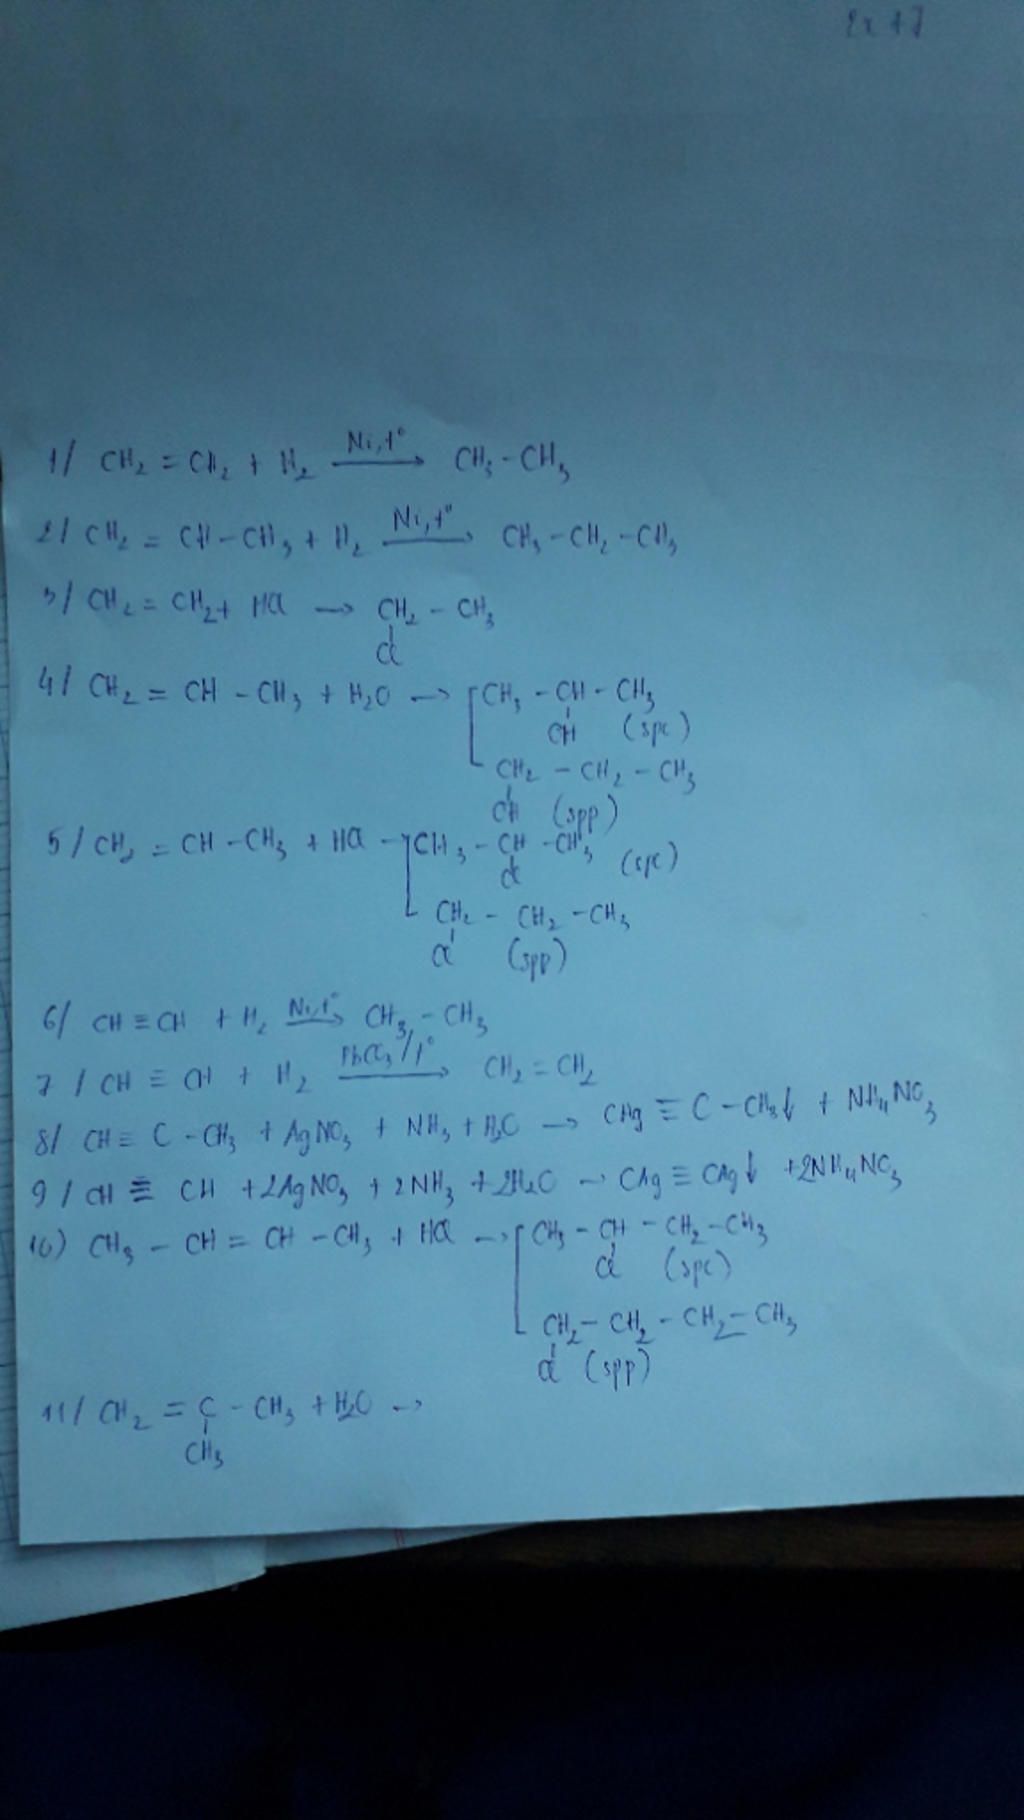 1/ CH₂ = CH₂ + H₂ —Ni,t°→ CH₃ - CH₃
2/ CH₂ = CH - CH₃ + H₂ —Ni,t°→ CH₃ - CH₂ - CH₃
3/ CH₂ = CH₂ + HCl → CH₂ - CH₃
Cl
4/ CH₂ = CH - CH₃ + H₂O → CH₃ - CH - CH₃
OH (spc)
CH₂ - CH₂ - CH₃
OH (spp)
5/ CH₂ = CH - CH₃ + HCl → CH₃ - CH - CH₃ (spc)
Cl
CH₂ - CH₂ - CH₃
Cl (spp)
6/ CH ≡ CH + H₂ —Ni,t°→ CH₃ - CH₃
7/ CH ≡ CH + H₂ —PbCO₃/t°→ CH₂ = CH₂
8/ CH ≡ C - CH₃ + AgNO₃ + NH₃ + H₂O → CAg ≡ C - CH₃↓ + NH₄NO₃
9/ CH ≡ CH + 2AgNO₃ + 2NH₃ + 2H₂O → CAg ≡ CAg↓ + 2NH₄NO₃
10) CH₃ - CH = CH - CH₃ + HCl → CH₃ - CH - CH₂ - CH₃
Cl (spc)
CH₂ - CH₂ - CH₂ - CH₃
Cl (spp)
11/ CH₂ = C - CH₃ + H₂O →
CH₃